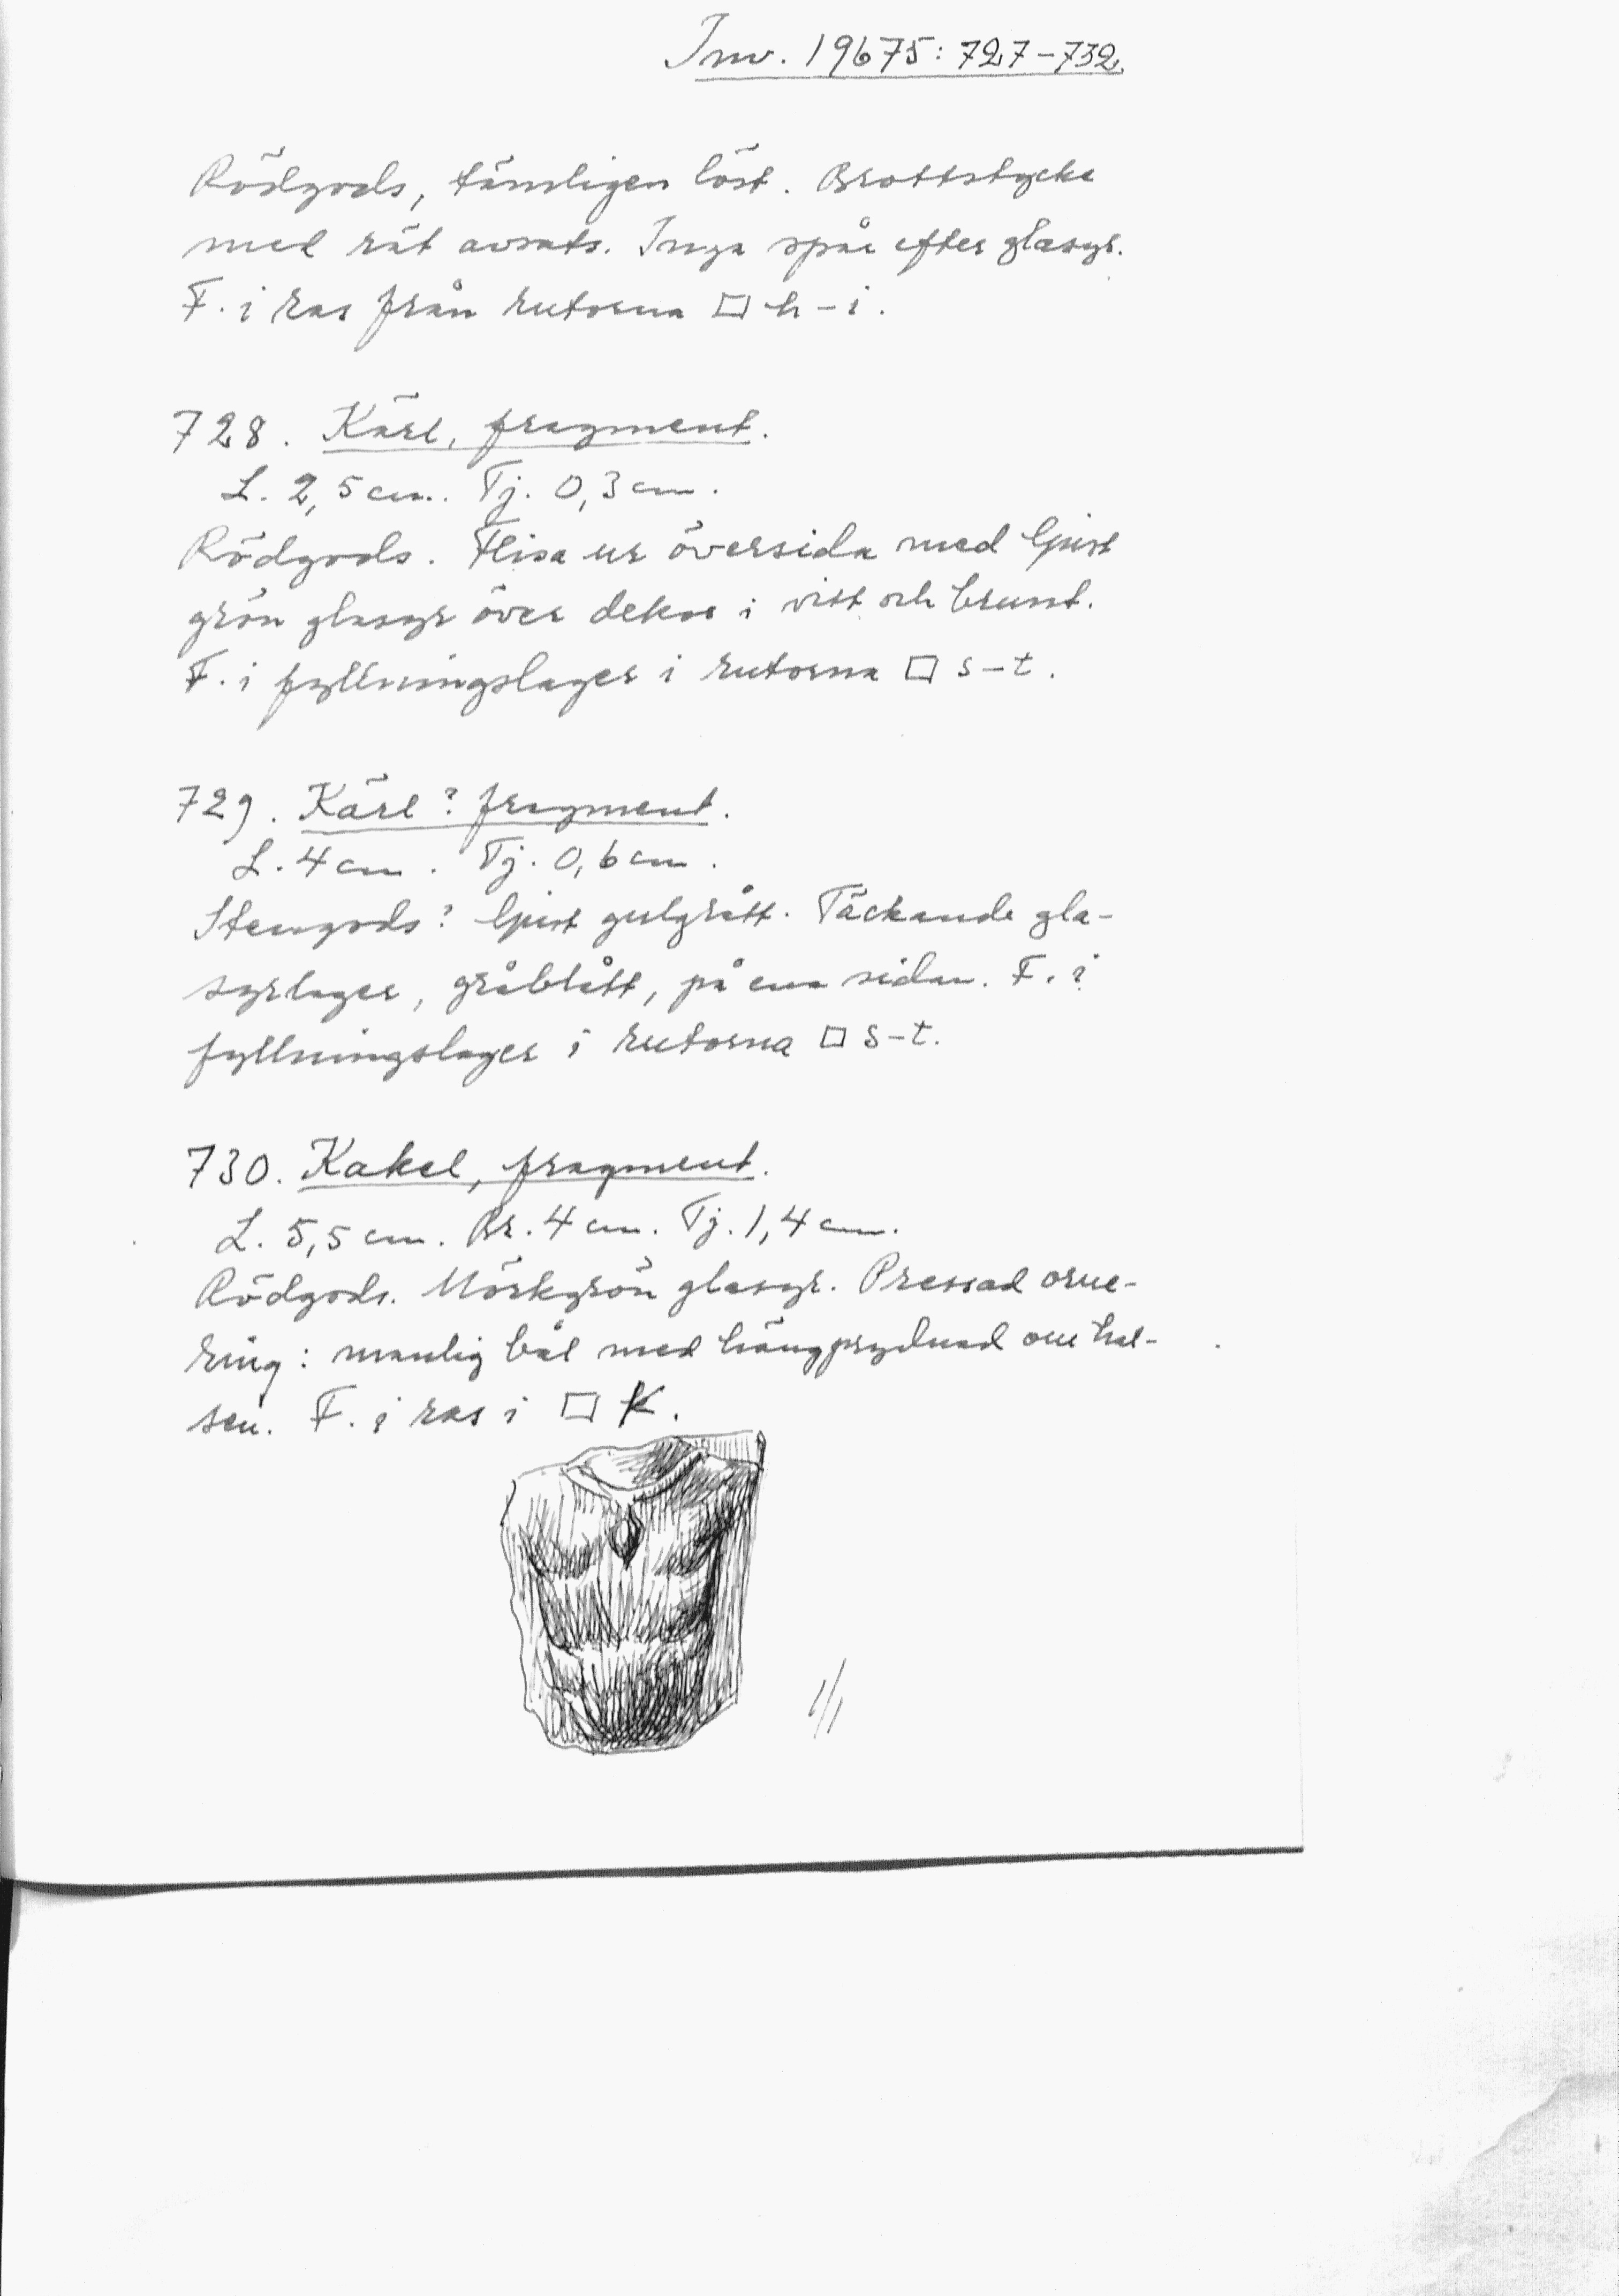 Inv. 19675: 727-732.
Rödgods, tämligen löst. Brottstycke
med rät avsats. Inga spår efter glasyr.
F. i ras från rutorna □ h-i.
728. Kärl, fragment.
L. 2,5 cm. Tj. 0,3 cm.
Rödgods. Flisa ur översida med ljust
grön glasyr över dekor i vitt och brunt.
F. i fyllningslager i rutorna □ s-t.
729. Kärl? fragment.
L. 4 cm. Tj. 0,6 cm.
Stengods? ljust gulgrått. Täckande gla-
syrlager, gråblått, på ena sidan. F. i
fyllningslager i rutorna □ s-t.
730. Kakel, fragment.
L. 5,5 cm. Br. 4 cm. Tj. 1,4 cm.
Rödgods. Mörkgrön glasyr. Pressad orne-
ring: manlig bål med hängprydnad om hal-
sen. F. i ras i □ K.
1/1